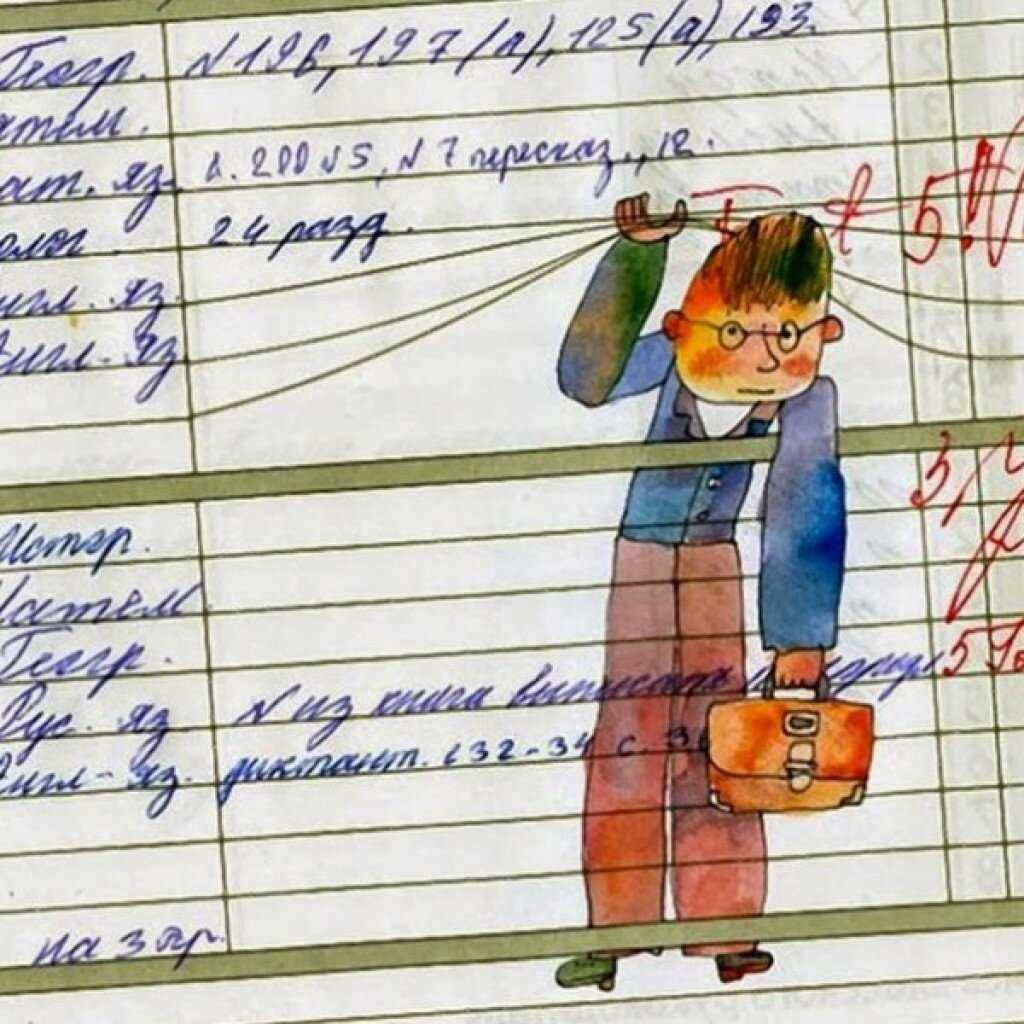 Геогр. №196, 197 (а), 125 (а), 193.
атем.
ат. яз. с. 200 №5, №7 пересказ., 12.
олог. 24 разд.
нгл. яз.
Англ. яз
5!
Истор. 3
Матем
Геогр. 5
Рус. яз № из книги выписать
Англ. яз. диктант. с 32-34 с. 3
на 3 пр.